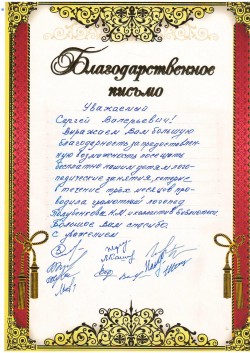 Благодарственное
письмо
Уважаемый
Сергей Валерьевич!
Выражаем Вам большую
благодарность за предоставлен-
ную возможность посещать
бесплатно нашим детям лого-
педические занятия, которые
в течение трёх месяцев про-
водила грамотный логопед
Н.М.
Большое Вам спасибо.
С уважением